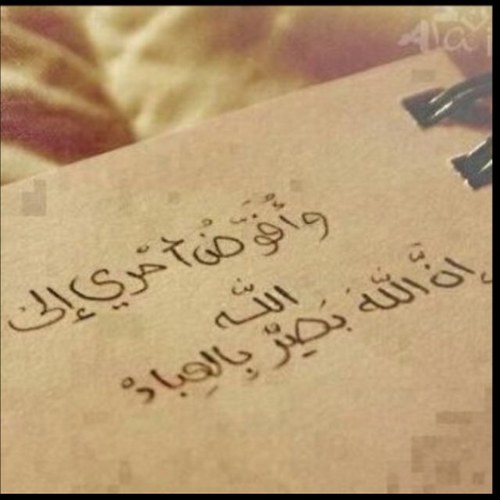 وأُفَوِّضُ أمْري إلى
اللّه
إنَّ اللَّهَ بَصِيرٌ بِالعِبادْ